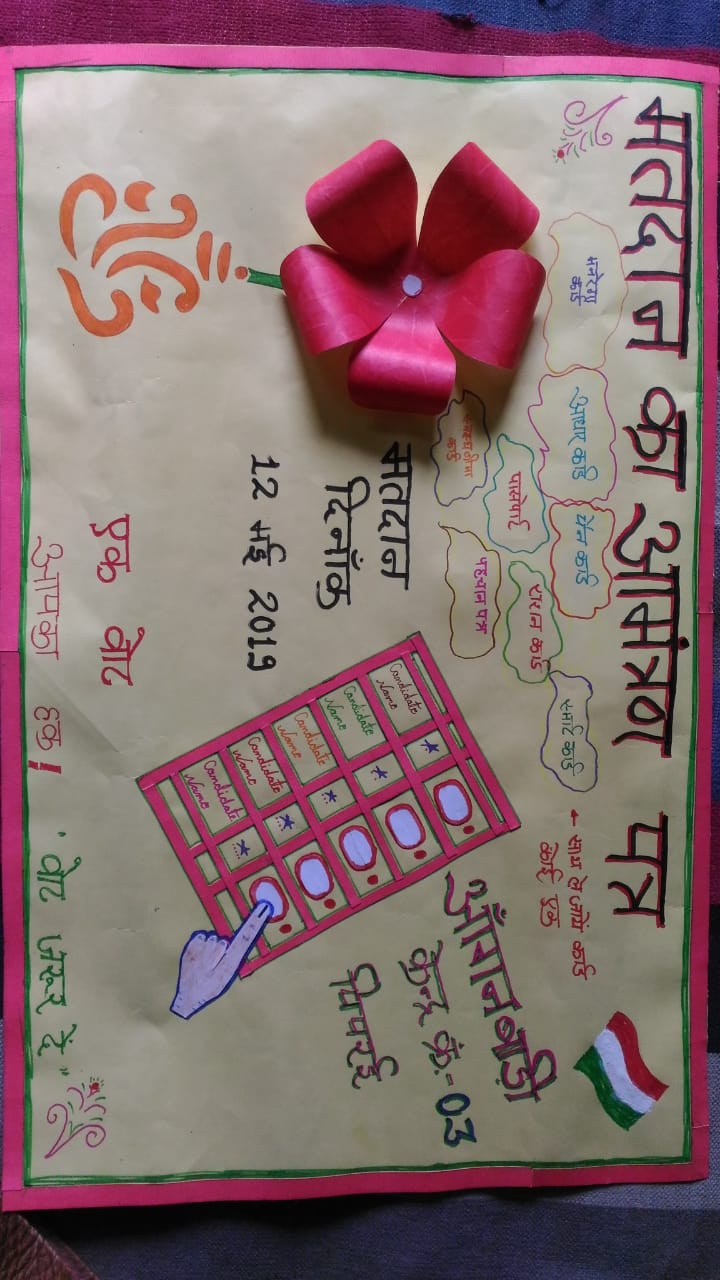 मतदान का आमंत्रण पत्र
मनरेगा
कार्ड
आधार कार्ड
पेन कार्ड
स्मार्ट कार्ड
← साथ ले जायें कोई
कोई एक
कार्ड
पासपोर्ट
राशन कार्ड
पहचान पत्र
मतदान
दिनाँक
12 मई 2019
Candidate
Name
Candidate
Name
Candidate
Name
Candidate
Name
Candidate
Name
आँगनबाड़ी
केन्द्र क्रं.- 03
पिपरई
एक वोट
आपका हक!
"वोट जरूर दें"